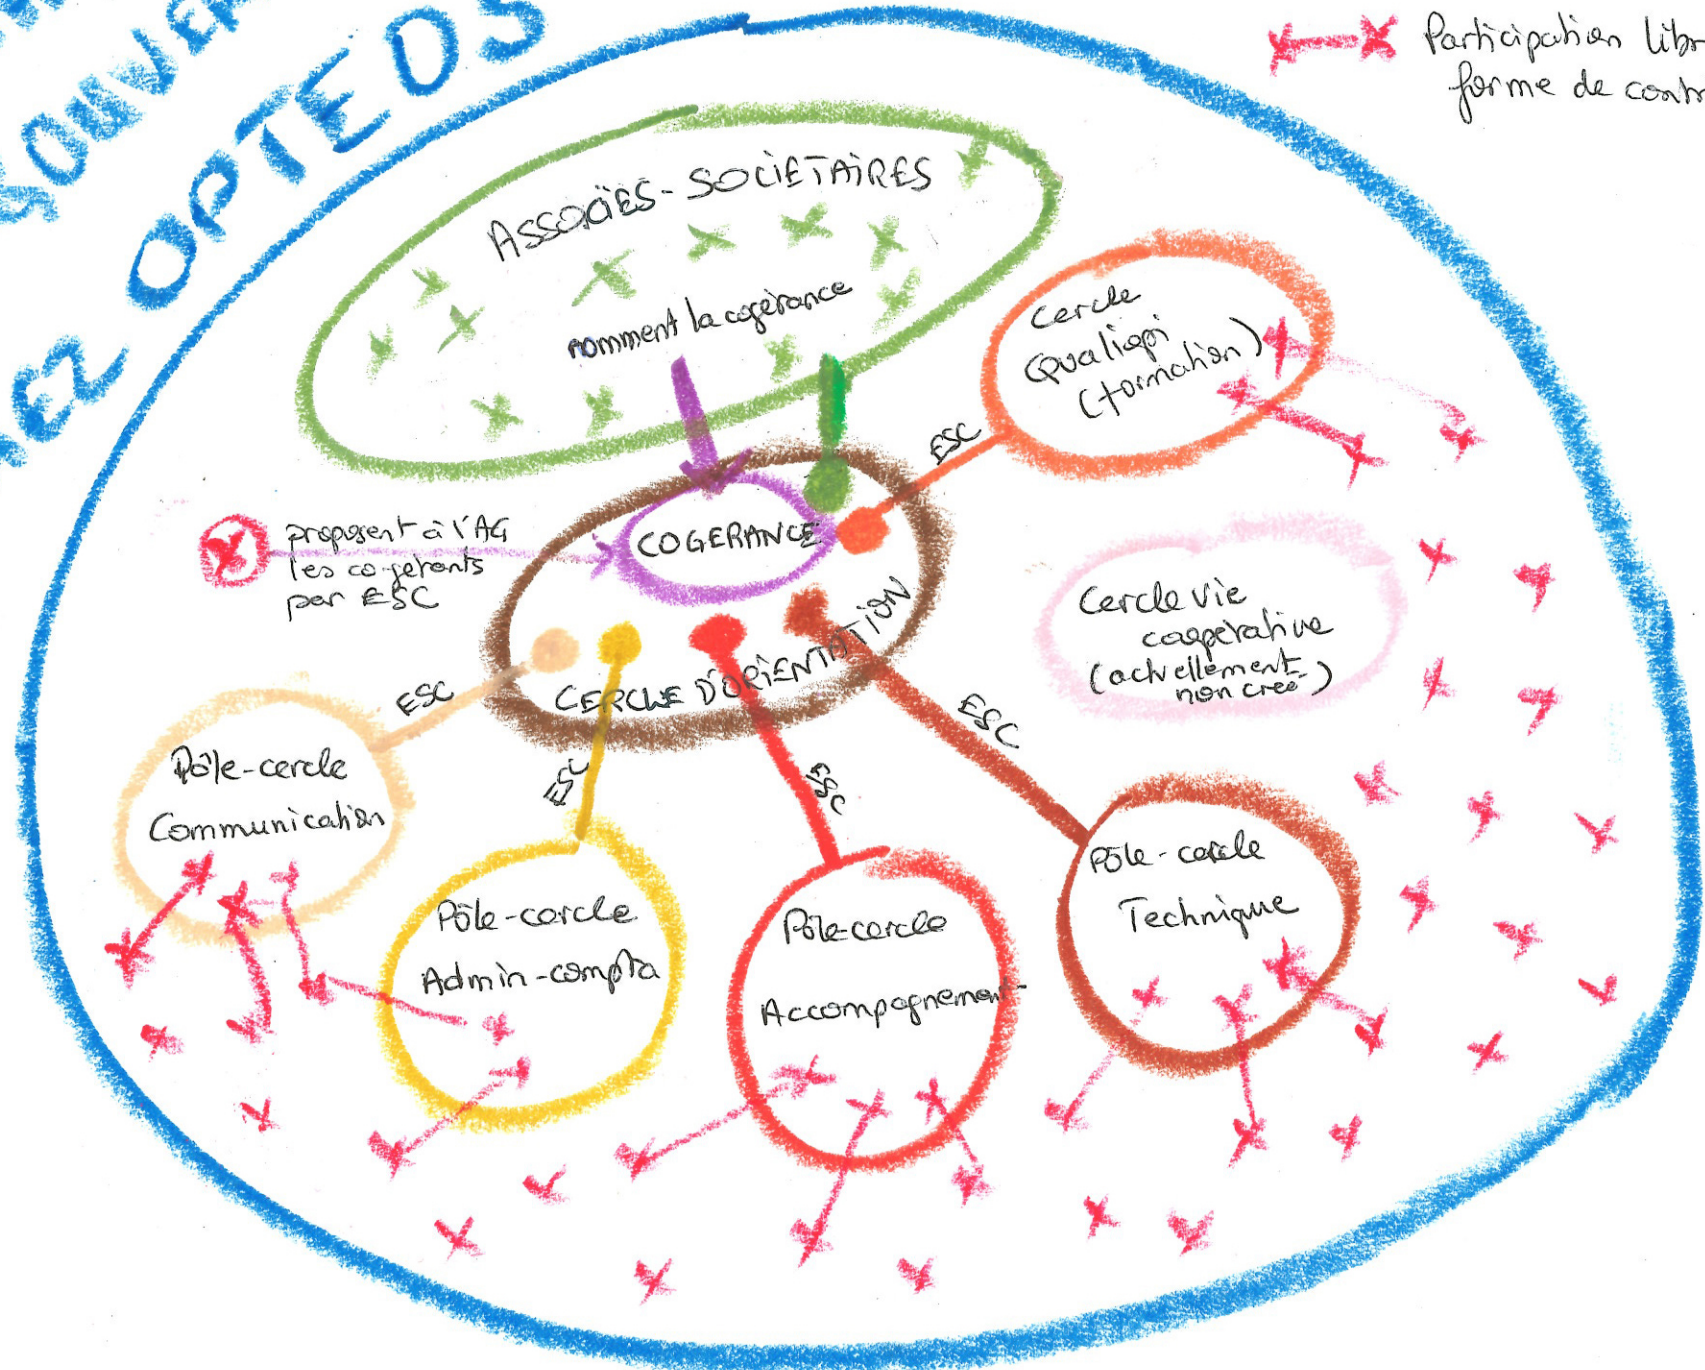 CHEZ OPTEOS
Participation
forme de
ASSOCIÉS-SOCIÉTAIRES
nomment la cogérance
Cercle
Qualiopi
(formation)
ESC
COGERANCE
proposent à l'AG
les co-gérants
par ESC
CERCLE D'ORIENTATION
Cercle vie
coopérative
(actuellement
non créé)
ESC
ESC
ESC
ESC
Pôle-cercle
Communication
Pôle-cercle
Admin-compta
Pôle-cercle
Accompagnement
Pôle-cercle
Technique